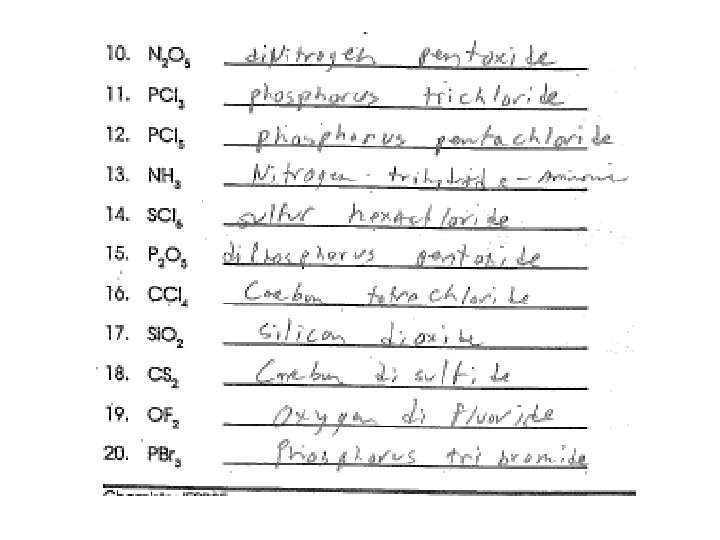 10. N₂O₅ diNitrogen pentoxide
11. PCl₃ phosphorus trichloride
12. PCl₅ phosphorus pentachloride
13. NH₃ Nitrogen - trihydride - Ammonia
14. SCl₆ sulfur hexachloride
15. P₂O₅ diPhosphorus pentoxide
16. CCl₄ Carbon tetrachloride
17. SiO₂ Silicon dioxide
18. CS₂ Carbon disulfide
19. OF₂ Oxygen difluoride
20. PBr₃ Phosphorus tribromide